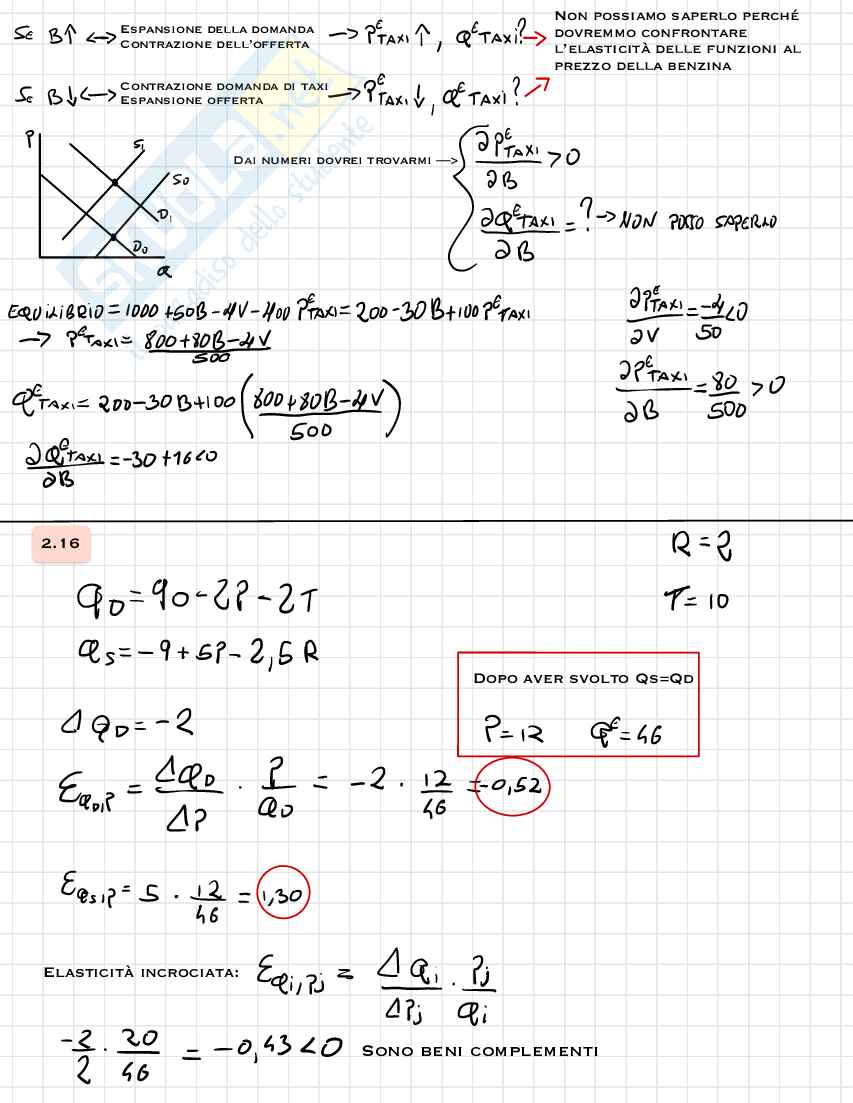 Se B↑ ↔ Espansione della domanda Contrazione dell'offerta → P^E TAXI ↑, Q^E TAXI? →
Non possiamo saperlo perché
dovremmo confrontare
l'elasticità delle funzioni al
prezzo della benzina
Se B↓ ↔ Contrazione domanda di taxi Espansione offerta → P^E TAXI ↓, Q^E TAXI?
P
S1
S0
D1
D0
Q
Dai numeri dovrei trovarmi → { ∂P^E TAXI / ∂B > 0
∂Q^E TAXI / ∂B = ? → NON POSSO SAPERLO
EQUILIBRIO = 1000 + 50B - 4V - 400 P^E TAXI = 200 - 30B + 100 P^E TAXI
→ P^E TAXI = 800 + 80B - 4V / 500
∂P^E TAXI / ∂V = -4 / 50 < 0
∂P^E TAXI / ∂B = 80 / 500 > 0
Q^E TAXI = 200 - 30B + 100 (800 + 80B - 4V / 500)
∂Q^E TAXI / ∂B = -30 + 16 < 0
2.16
R = 2
T = 10
QD = 90 - 2P - 2T
QS = -9 + 5P - 2,5 R
Dopo aver svolto Qs=Qd
P = 12 Q^E = 46
Δ QD = -2
E QD,P = ΔQD / ΔP · P / QD = -2 · 12 / 46 = -0,52
E QS,P = 5 · 12 / 46 = 1,30
Elasticità incrociata: E Qi,Pj = ΔQi / ΔPj · Pj / Qi
-2 / 2 · 20 / 46 = -0,43 < 0 Sono beni complementi